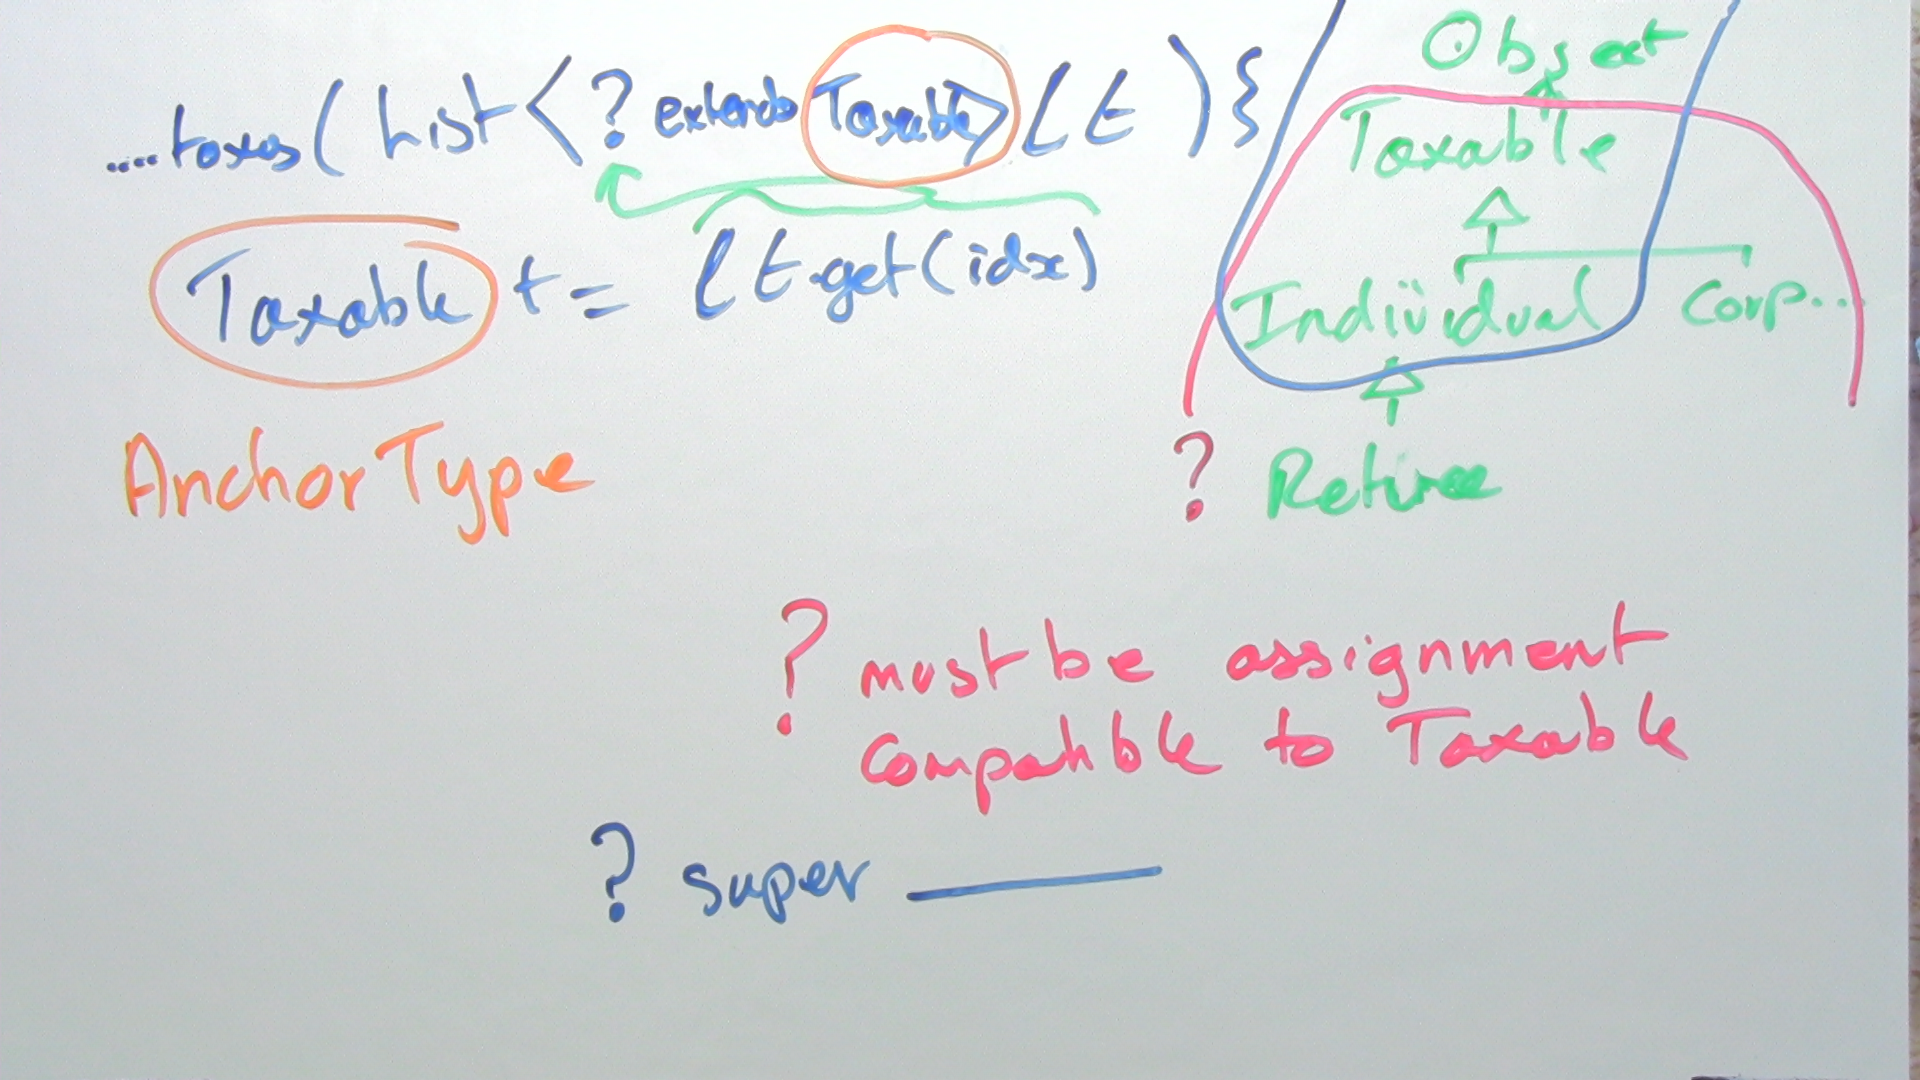 ....taxes(List<? extends Taxable> lt){
Taxable t = lt.get(idx)
AnchorType
Object
Taxable
Individual Corp...
? Retiree
? must be assignment
compatible to Taxable
? super ____